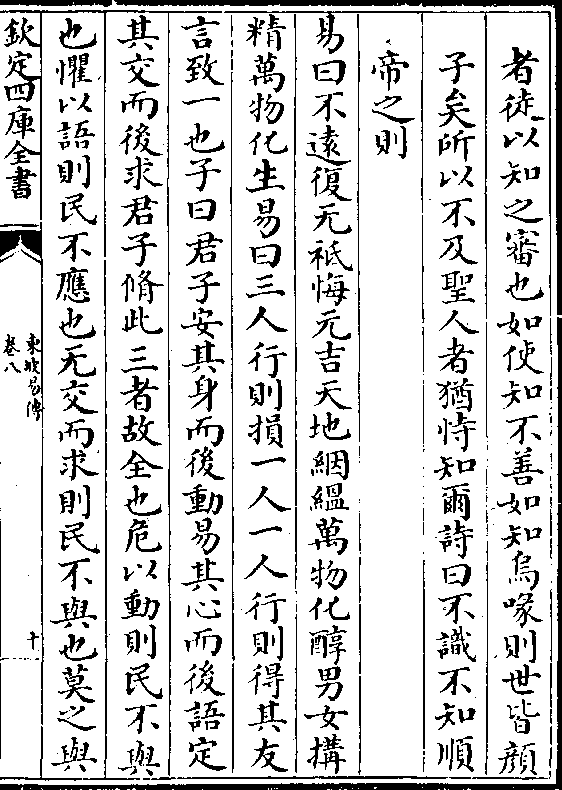 者徒以知之審也如使知不善如知烏喙則世皆顔
子矣所以不及聖人者猶恃知爾詩曰不識不知順
帝之則
易曰不遠復无祗悔元吉天地絪縕萬物化醇男女搆
精萬物化生易曰三人行則損一人一人行則得其友
言致一也子曰君子安其身而後動易其心而後語定
其交而後求君子脩此三者故全也危以動則民不與
也懼以語則民不應也无交而求則民不與也莫之與
欽定四庫全書
東坡易傳
卷八
十